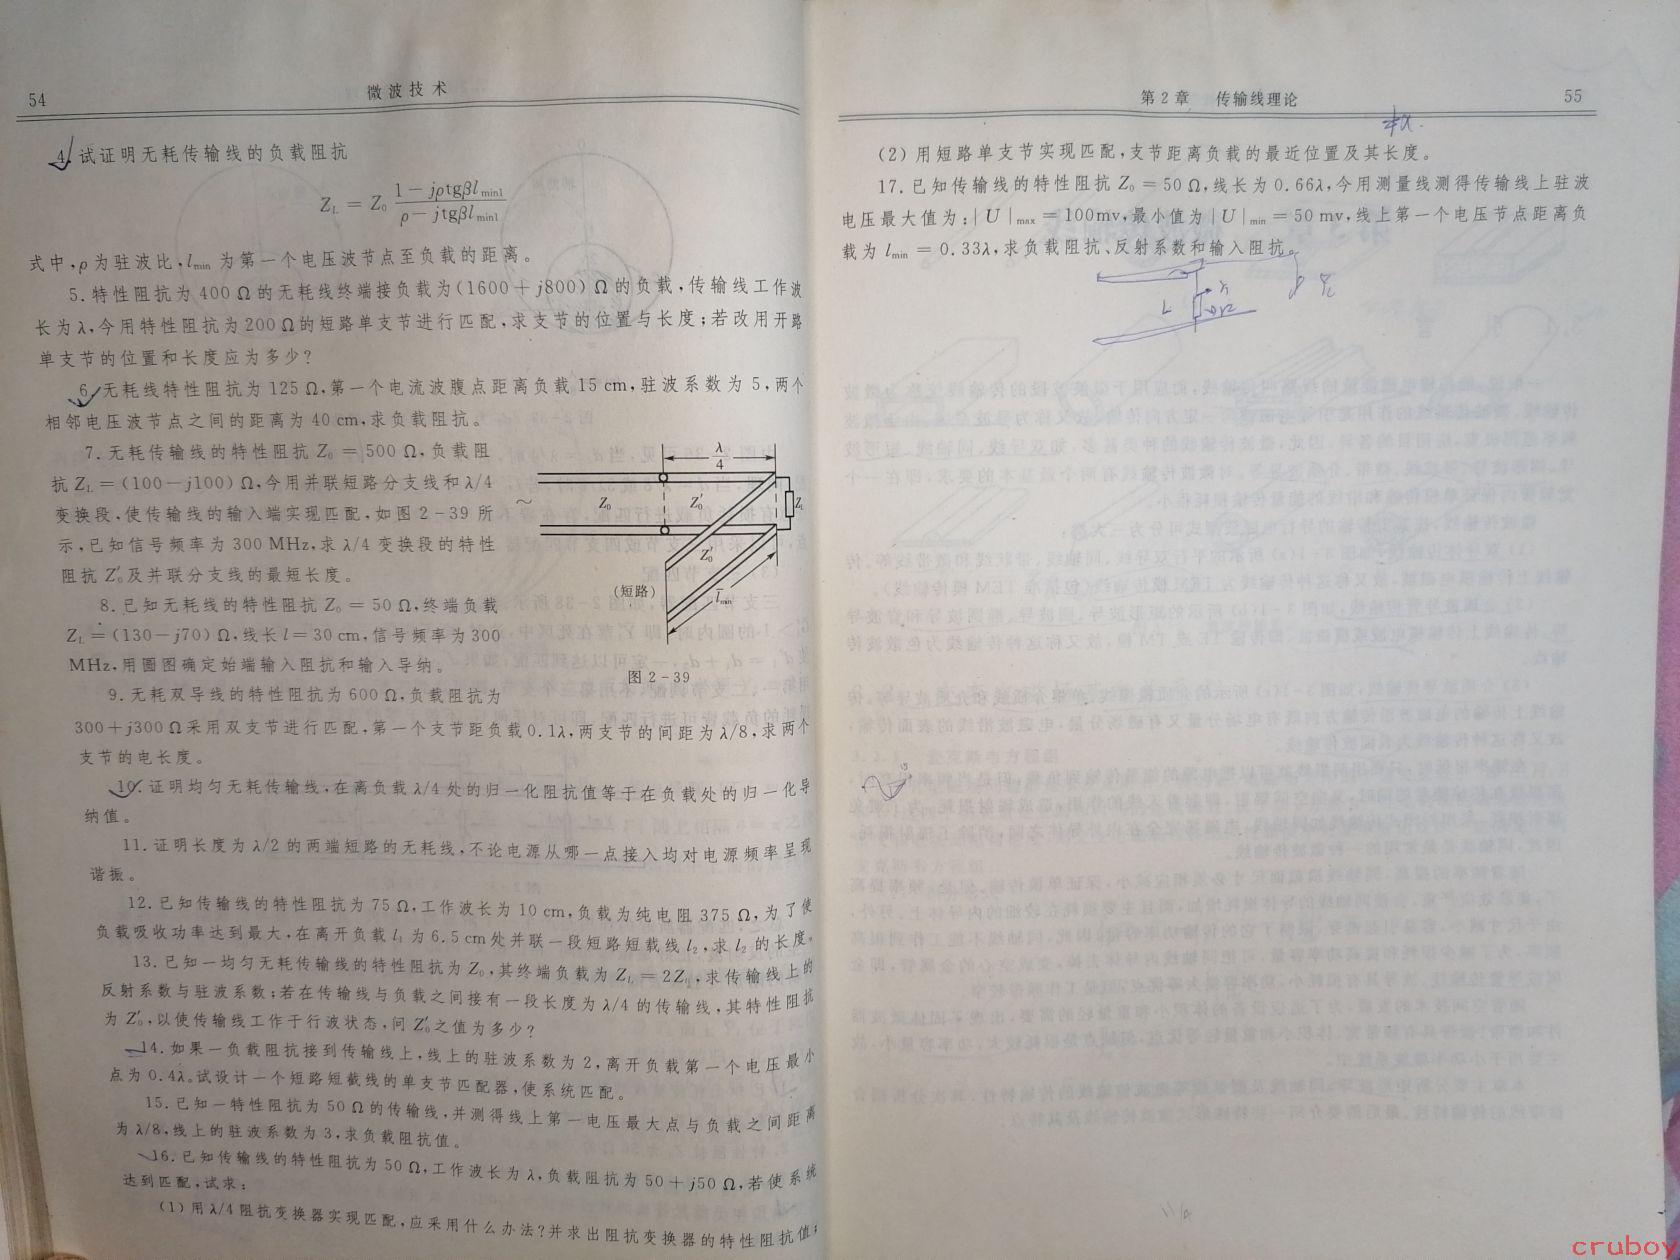 54
微波技术
4.试证明无耗传输线的负载阻抗
Z_L = Z_0 (1－jρtgβl_min1)/(ρ－jtgβl_min1)
式中,ρ为驻波比,l_min 为第一个电压波节点至负载的距离。
5.特性阻抗为400 Ω的无耗线终端接负载为(1600＋j800) Ω的负载,传输线工作波
长为λ,今用特性阻抗为200 Ω的短路单支节进行匹配,求支节的位置与长度;若改用开路
单支节的位置和长度应为多少?
6.无耗线特性阻抗为125 Ω,第一个电流波腹点距离负载15 cm,驻波系数为5,两个
相邻电压波节点之间的距离为40 cm,求负载阻抗。
7.无耗传输线的特性阻抗 Z_0＝500 Ω,负载阻
抗 Z_L＝(100－j100) Ω,今用并联短路分支线和λ/4
变换段,使传输线的输入端实现匹配,如图2-39所
示,已知信号频率为300 MHz,求λ/4变换段的特性
阻抗 Z_0′及并联分支线的最短长度。
8.已知无耗线的特性阻抗 Z_0＝50 Ω,终端负载
Z_L＝(130－j70) Ω,线长 l＝30 cm,信号频率为300
MHz,用圆图确定始端输入阻抗和输入导纳。
λ/4
～
Z_0
Z_0′
Z_L
Z_0′
(短路)
l_min
图2-39
9.无耗双导线的特性阻抗为600 Ω,负载阻抗为
300＋j300 Ω采用双支节进行匹配,第一个支节距负载0.1λ,两支节的间距为λ/8,求两个
支节的电长度。
10.证明均匀无耗传输线,在离负载λ/4处的归一化阻抗值等于在负载处的归一化导
纳值。
11.证明长度为λ/2的两端短路的无耗线,不论电源从哪一点接入均对电源频率呈现
谐振。
12.已知传输线的特性阻抗为75 Ω,工作波长为10 cm,负载为纯电阻375 Ω,为了使
负载吸收功率达到最大,在离开负载 l_1 为6.5 cm处并联一段短路短载线 l_2,求 l_2 的长度。
13.已知一均匀无耗传输线的特性阻抗为 Z_0,其终端负载为 Z_L＝2Z_0,求传输线上的
反射系数与驻波系数;若在传输线与负载之间接有一段长度为λ/4的传输线,其特性阻抗
为 Z_0′,以使传输线工作于行波状态,问 Z_0′之值为多少?
14.如果一负载阻抗接到传输线上,线上的驻波系数为2,离开负载第一个电压最小
点为0.4λ。试设计一个短路短截线的单支节匹配器,使系统匹配。
15.已知一特性阻抗为50 Ω的传输线,并测得线上第一电压最大点与负载之间距离
为λ/8,线上的驻波系数为3,求负载阻抗值。
16.已知传输线的特性阻抗为50 Ω,工作波长为λ,负载阻抗为50＋j50 Ω,若使系统
达到匹配,试求:
(1)用λ/4阻抗变换器实现匹配,应采用什么办法?并求出阻抗变换器的特性阻抗值;
第2章 传输线理论
55
(2)用短路单支节实现匹配,支节距离负载的最近位置及其长度。
17.已知传输线的特性阻抗 Z_0＝50 Ω,线长为0.66λ,今用测量线测得传输线上驻波
电压最大值为:|U|_max＝100mv,最小值为|U|_min＝50 mv,线上第一个电压节点距离负
载为 l_min＝0.33λ,求负载阻抗、反射系数和输入阻抗。
L
cruboy